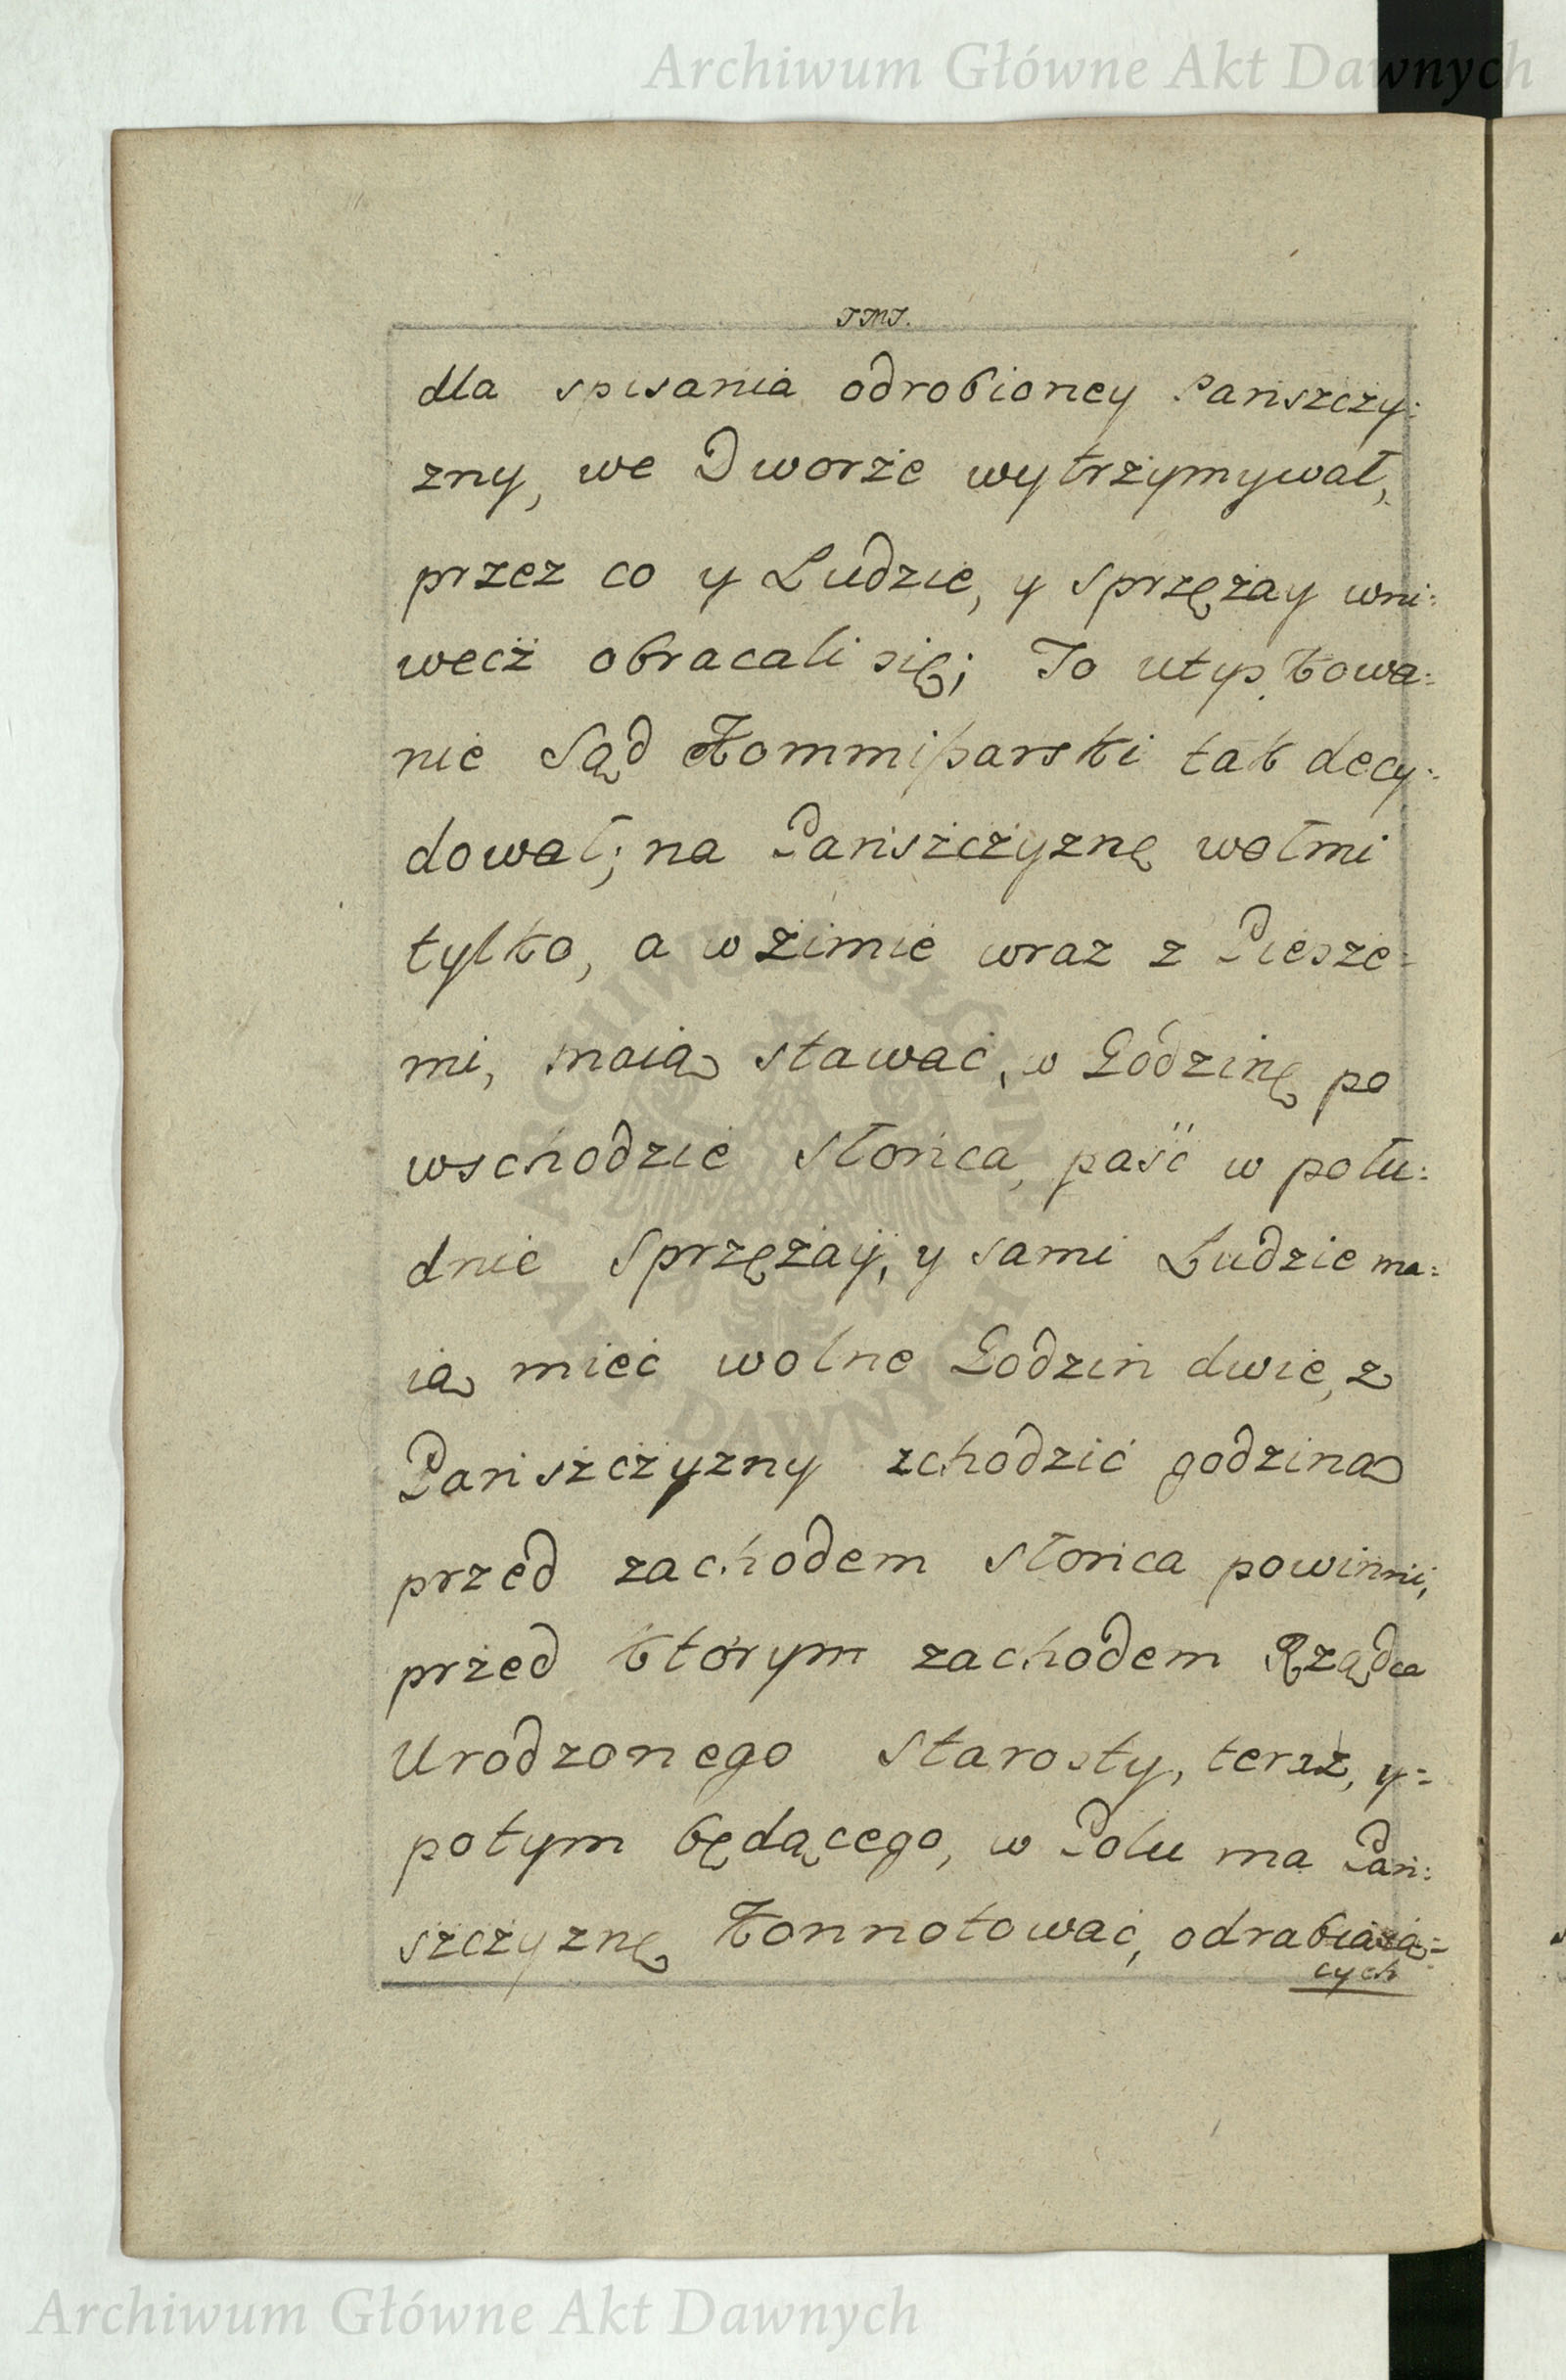 Archiwum Główne Akt Dawnych
JMJ.
dla spisania odrobioney Pańszczy:
zny, we Dworże wytrzymywał,
przez co y Ludzie, y sprzężay wni:
wecż obracali się; To utyskowa:
nie Sąd Kommißarski tak decy:
dował; na Pańszczyznę wołmi
tylko, a w zimie wraz z Piesze:
mi, maią stawać, w Godzinę po
wschodzie słońca, paść w połu:
dnie sprzężay, y sami Ludzie ma:
ią mieć wolne Godzin dwie, z
Pańszczyzny zchodzić godziną
przed zachodem słońca powinni,
przed którym zachodem Rządca
Urodzonego Starosty, teraz, y:
potym będącego, w Polu ma Pań:
szczyznę konnotować, odrabiaią:
cych
ARCHIWUM GŁÓWNE
AKT DAWNYCH
Archiwum Główne Akt Dawnych